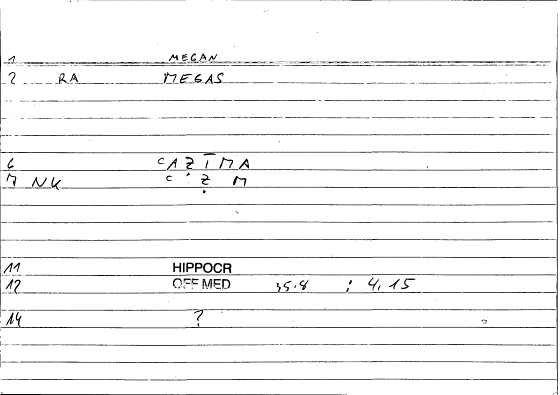 1 MEGAN
2 RA MEGAS
6 CAZIMA
7 NK C . Z M
11 HIPPOCR
12 OFF MED 35.8 : 4,15
14 ?